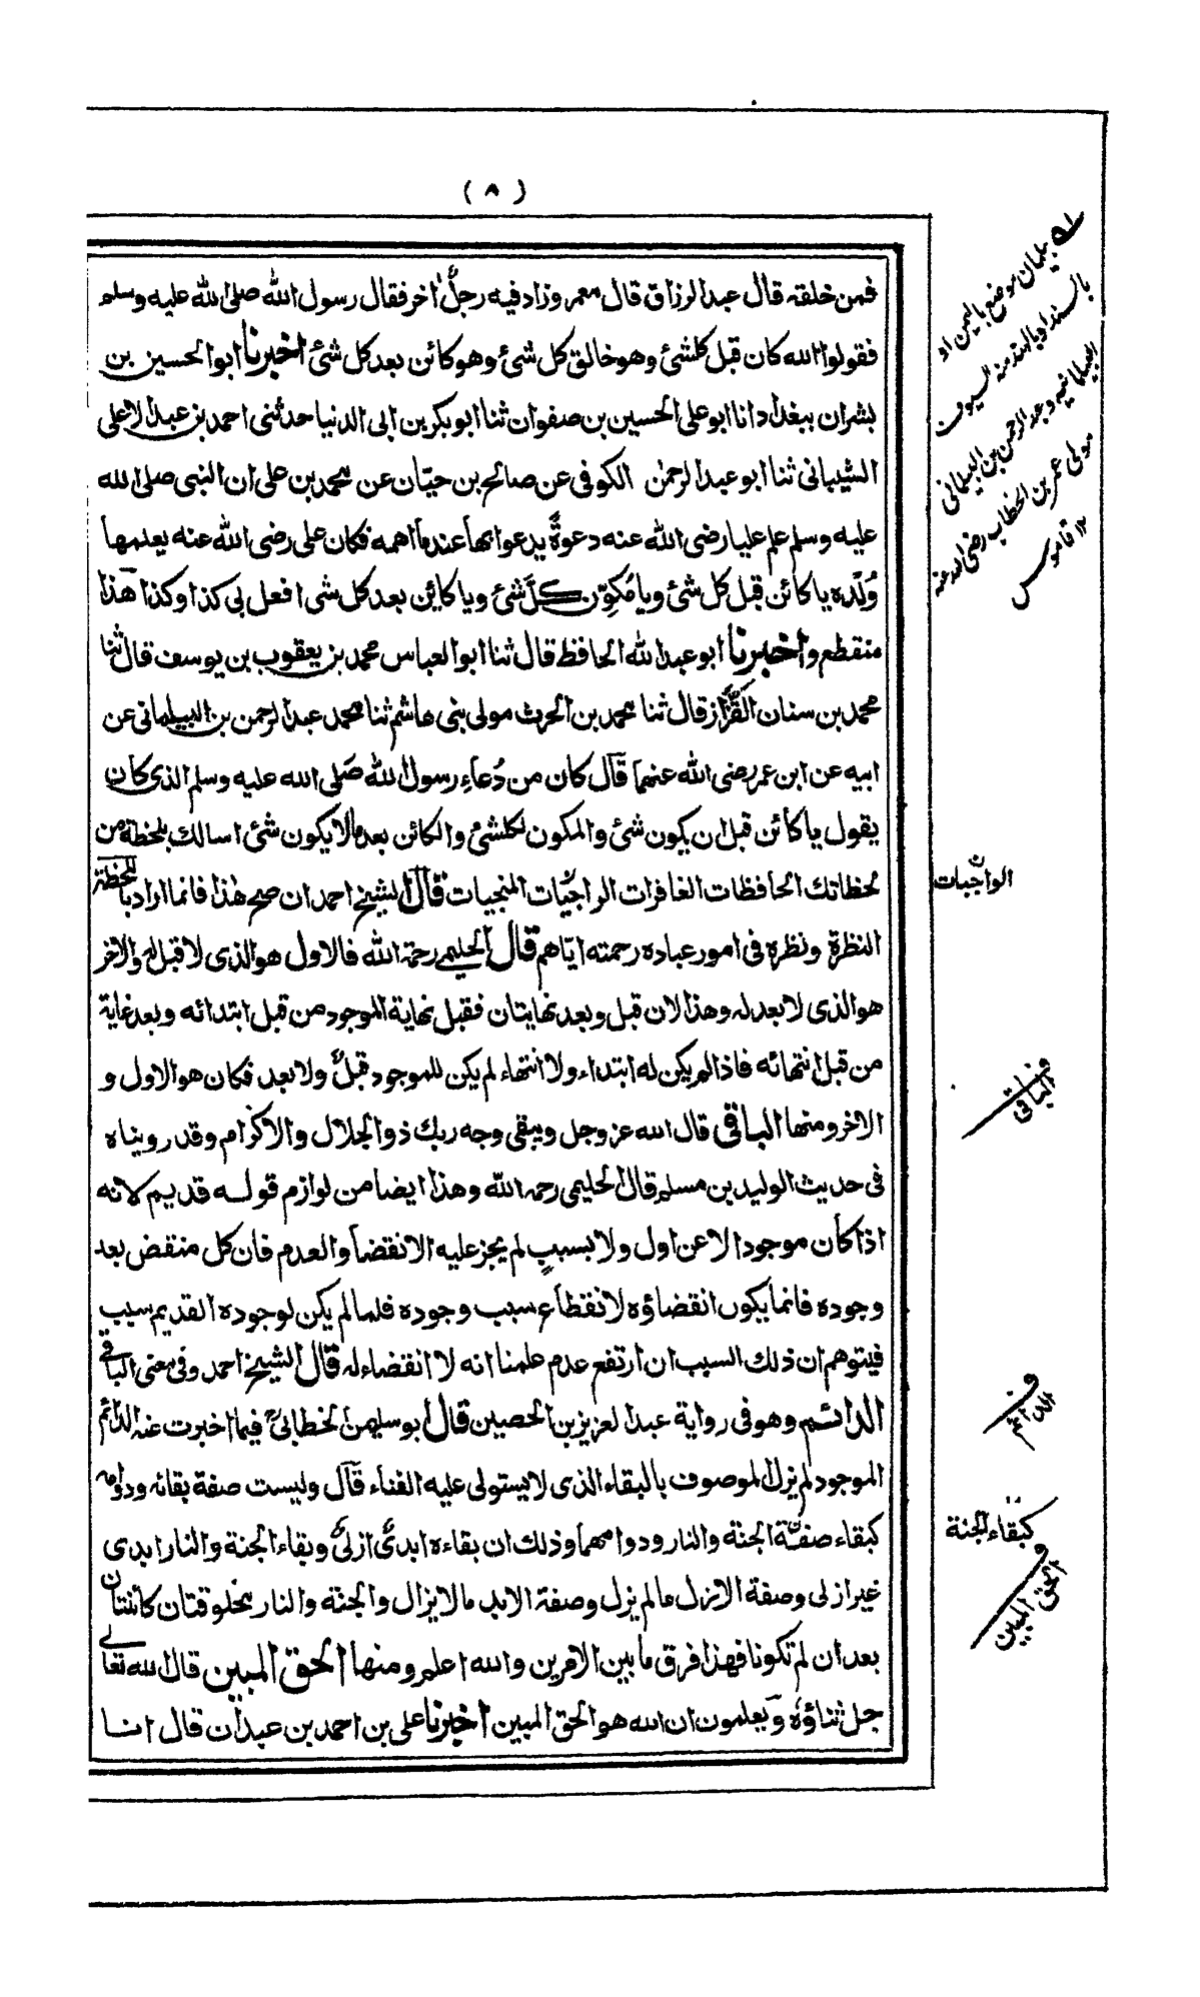 (٨)
فمن خلقه قال عبد الرزاق قال معمر وزاد فيه رجلٌ اٰخر فقال رسول الله صلى الله عليه وسلم
فقولوا الله كان قبل كلشئ وهو خالق كل شئ وهو كائن بعد كل شئ اخبرنا ابو الحسين بن
بشران ببغداد انا ابو على الحسين بن صفوان ثنا ابو بكر بن ابى الدنيا حدثنى احمد بن عبد الاعلى
الشيبانى ثنا ابو عبد الرحمٰن الكوفى عن صالح بن حيّان عن محمد بن على ان النبى صلى الله
عليه وسلم علم عليا رضى الله عنه دعوةً يدعوا بها عند ما اهمه فكان على رضى الله عنه يعلمها
وُلْدَه يا كائن قبل كل شئ ويا مُكوِّن كلَّ شئ ويا كائن بعد كل شى افعل بى كذا وكذا هٰذا
منقطع واخبرنا ابو عبد الله الحافظ قال ثنا ابو العباس محمد بن يعقوب بن يوسف قال ثنا
محمد بن سنان القَزَّاز قال ثنا محمد بن الحرث مولى بنى هاشم ثنا محمد عبد الرحمن بن البيلمانى عن
ابيه عن ابن عمر رضى الله عنهما قال كان من دُعاءِ رسول الله صَلى الله عليه وسلم الذى كان
يقول يا كائن قبل ان يكون شئ والمكون لكلشئ والكائن بعد ما لا يكون شئ اسالك بلحظة من
لحظاتك الحافظات الغافرات الراجيّات المنجيات قال الشيخ احمد ان صح هٰذا فانما اراد باللحظة
النظرة ونظره فى امور عباده رحمته ايّاهم قال الحليمى رحمة الله فالاول هو الذى لا قبل له والاخر
هو الذى لا بعد له وهذا لان قبل وبعد نهايتان فقبل نهاية الموجود من قبل ابتدائه وبعد غاية
من قبل انتهائه فاذا لم يكن له ابتداء ولا انتهاء لم يكن للموجود قبلٌ ولا بعد فكان هو الاول و
الاخر ومنها الباقى قال الله عز وجل ويبقى وجه ربك ذو الجلال والاكرام وقد رويناه
فى حديث الوليد بن مسلم قال الحليمى رحمه الله وهذا ايضا من لوازم قوله قديم لانه
اذا كان موجودا لا عن اول ولا بسببٍ لم يجز عليه الانقضا والعدم فان كل منقض بعد
وجوده فانما يكون انقضاؤه لانقطاع سبب وجوده فلما لم يكن لوجوده القديم سبب
فيتوهم ان ذلك السبب ان ارتفع عدم علمنا انه لا انقضاء له قال الشيخ احمد وفى معنى الباقى
الدائم وهو فى رواية عبد العزيز بن الحصين قال ابو سليمٰن الخطابىؒ فيما اخبرت عنه الدائم
الموجود لم يزل الموصوف بالبقاء الذى لا يستولى عليه الفناء قال وليست صفة بقائه ودوامه
كبقاء صفة الجنة والنار ودوامهما وذلك ان بقاءه ابدىٌ ازلىٌ وبقاء الجنة والنار ابدى
غير ازلى وصفة الازل ما لم يزل وصفة الابد ما لا يزال والجنة والنار مخلوقتان كائنتان
بعد ان لم تكونا فهذا فرق ما بين الامرين والله اعلم ومنها الحق المبين قال الله تعالى
جل ثناؤه ويعلمون ان الله هو الحق المبين اخبرنا على بن احمد بن عبدان قال انا
بيلمان موضع باليمن او
بالسند او بالهند منه السيوف
البيلمانيه وعبد الرحمن بن البيلمانى
مولى عمر بن الخطاب رضى الله عنه
١٢ قاموس
الواجبات
الباقى
الدائم
كبقاء الجنة
الحق المبين